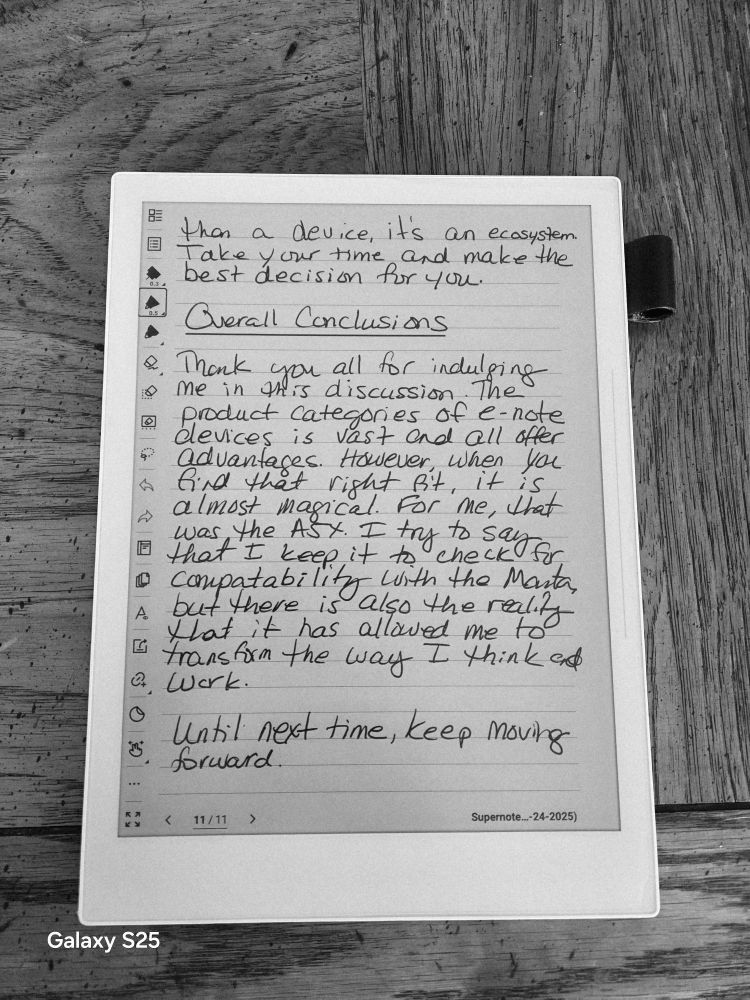 than a device, it's an ecosystem.
Take your time and make the
best decision for you.
Overall Conclusions
Thank you all for indulging
me in this discussion. The
product categories of e-note
devices is vast and all offer
advantages. However, when you
find that right fit, it is
almost magical. For me, that
was the A5X. I try to say
that I keep it to check for
compatability with the Manta,
but there is also the reality
that it has allowed me to
transform the way I think and
work.
Until next time, keep moving
forward.
0.3
0.5
11 / 11
Supernote...-24-2025)
Galaxy S25